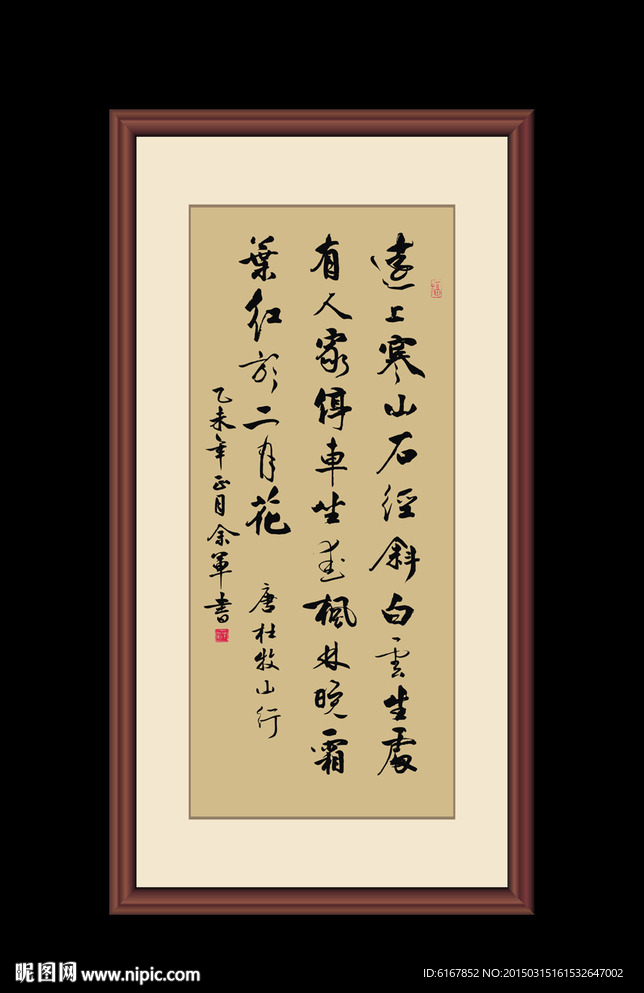 遠上寒山石徑斜白雲生處
有人家停車坐愛楓林晚霜
葉紅於二月花 唐杜牧山行
乙未年正月余軍書
昵图网 www.nipic.com
ID:6167852 NO:20150315161532647002